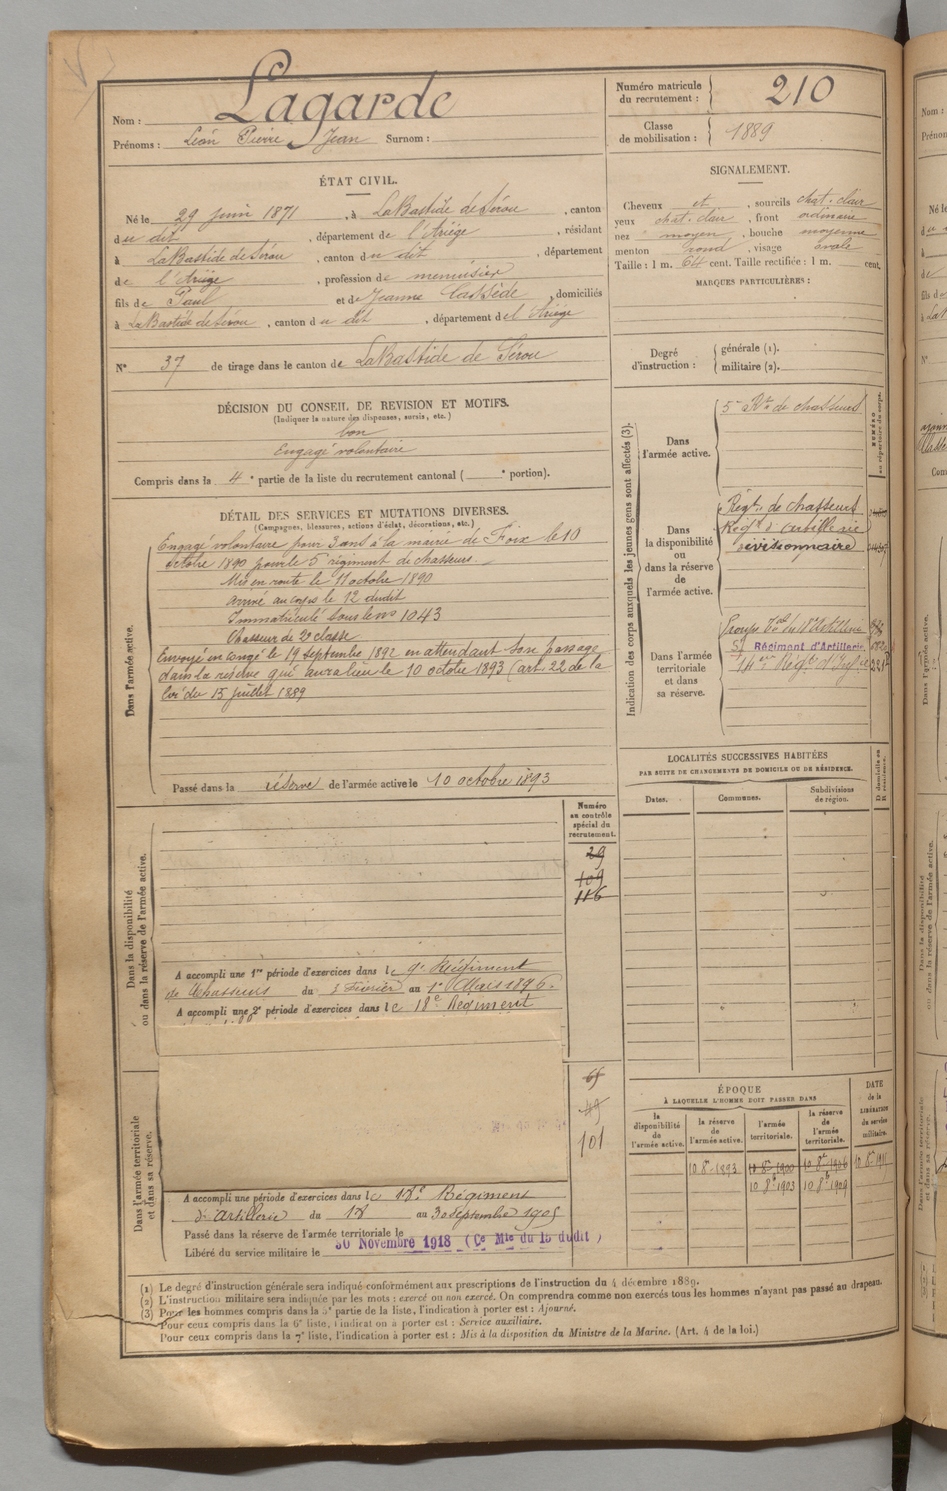 Nom : Lagarde
Prénoms : Léon Pierre Jean Surnom :
Numéro matricule du recrutement : 210
Classe de mobilisation : 1889
ÉTAT CIVIL.
Né le 29 juin 1871, à LaBastide de Sérou, canton
du dit, département de l'Ariège, résidant
à LaBastide de Sérou, canton du dit, département
de l'Ariège, profession de menuisier
fils de Paul et de Jeanne, domiciliés
à LaBastide de Sérou, canton du dit, département de l'Ariège
N° 37 de tirage dans le canton de LaBastide de Sérou
SIGNALEMENT.
Cheveux et, sourcils chat. clair
yeux chat. clair, front ordinaire
nez moyen, bouche moyenne
menton rond, visage ovale
Taille : 1 m. 64 cent. Taille rectifiée : 1 m. cent.
MARQUES PARTICULIÈRES :
Degré d'instruction : générale (1).
militaire (2).
DÉCISION DU CONSEIL DE REVISION ET MOTIFS.
(Indiquer la nature des dispenses, sursis, etc.)
bon
Engagé volontaire
Compris dans la 4e partie de la liste du recrutement cantonal ( e portion).
DÉTAIL DES SERVICES ET MUTATIONS DIVERSES.
(Campagnes, blessures, actions d'éclat, décorations, etc.)
Dans l'armée active.
Engagé volontaire pour 3 ans à la mairie de Foix le 10
octobre 1890 pour le 5e régiment de chasseurs.
Mis en route le 11 octobre 1890
arrivé au corps le 12 dudit
Immatriculé sous le no 1043
Chasseur de 2e classe
Envoyé en congé le 19 septembre 1892 en attendant son passage
dans la réserve qui aura lieu le 10 octobre 1893 (art. 22 de la
loi du 15 juillet 1889
Passé dans la réserve de l'armée active le 10 octobre 1893
Indication des corps auxquels les jeunes gens sont affectés (3).
NUMÉRO au répertoire du corps.
Dans l'armée active.
5e Rt de chasseurs
Dans la disponibilité ou dans la réserve de l'armée active.
Régt. de chasseurs
Régt d'artillerie
divisionnaire
Dans l'armée territoriale et dans sa réserve.
Groupe
Régiment d'Artillerie
LOCALITÉS SUCCESSIVES HABITÉES
PAR SUITE DE CHANGEMENTS DE DOMICILE OU DE RÉSIDENCE.
Dates. Communes. Subdivisions de région. D domicile ou R résidence.
Dans la disponibilité ou dans la réserve de l'armée active.
Numéro au contrôle spécial du recrutement.
29
109
116
A accompli une 1re période d'exercices dans le 9e Régiment
de Chasseurs du 3 Février au 1er Mars 1896.
A accompli une 2e période d'exercices dans le 18e Régiment
Dans l'armée territoriale et dans sa réserve.
65
49
101
A accompli une période d'exercices dans le 18e Régiment
d'artillerie du 18 au 30 septembre 1905
Passé dans la réserve de l'armée territoriale le
Libéré du service militaire le 30 Novembre 1918 (Ce Mle du 15 dudit)
ÉPOQUE
À LAQUELLE L'HOMME DOIT PASSER DANS
la disponibilité de l'armée active. la réserve de l'armée active. l'armée territoriale. la réserve de l'armée territoriale. DATE de la LIBÉRATION du service militaire.
10 8e 1893 10 8e 1900 10 8e 1906 10 8e 1911
10 8e 1903 10 8e 1909
(1) Le degré d'instruction générale sera indiqué conformément aux prescriptions de l'instruction du 4 décembre 1889.
(2) L'instruction militaire sera indiquée par les mots : exercé ou non exercé. On comprendra comme non exercés tous les hommes n'ayant pas passé au drapeau.
(3) Pour les hommes compris dans la 5e partie de la liste, l'indication à porter est : Ajourné.
Pour ceux compris dans la 6e liste, l'indication à porter est : Service auxiliaire.
Pour ceux compris dans la 7e liste, l'indication à porter est : Mis à la disposition du Ministre de la Marine. (Art. 4 de la loi.)